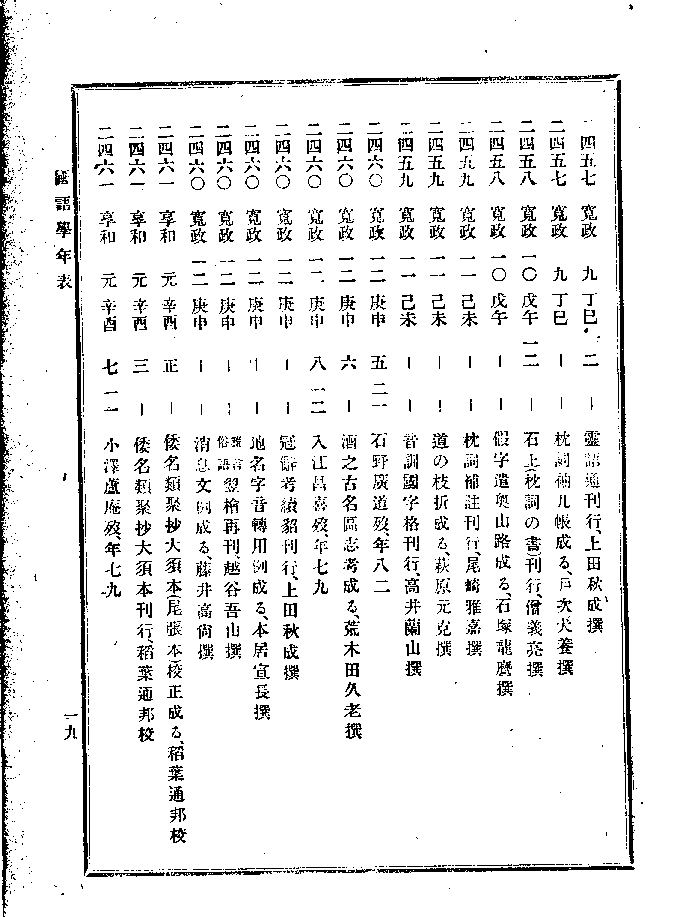 二四五七 寛政 九 丁巳 二 ― 靈語通刊行、上田秋成撰
二四五七 寛政 九 丁巳 ― ― 枕詞補几帳成る、戸次犬養撰
二四五八 寛政 一〇 戊午 一二 石上(枕詞の書)刊行、僧義亮撰
二四五八 寛政 一〇 戊午 ― ― 假字遣奧山路成る、石塚龍麿撰
二四五九 寛政 一一 己未 ― ― 枕詞補註刊行、尾崎雅嘉撰
二四五九 寛政 一一 己未 ― ― 道の枝折成る、萩原元克撰
二四五九 寛政 一一 己未 ― ― 音訓國字格刊行、高井蘭山撰
二四六〇 寛政 一二 庚申 五 二一 石野廣道歿、年八二
二四六〇 寛政 一二 庚申 六 ― 酒之古名區志考成る、荒木田久老撰
二四六〇 寛政 一二 庚申 八 一二 入江昌喜歿、年七九
二四六〇 寛政 一二 庚申 ― ― 冠辭考續貂刊行、上田秋成撰
二四六〇 寛政 一二 庚申 ― 地名字音轉用例成る、本居宣長撰
二四六〇 寛政 一二 庚申 ― ― 雅言俗語翌檜再刊、越谷吾山撰
二四六〇 寛政 一二 庚申 ― ― 消息文例成る、藤井高尚撰
二四六一 享和 元 辛酉 正 ― 倭名類聚抄大須本(尾張本)校正成る、稻葉通邦校
二四六一 享和 元 辛酉 三 ― 倭名類聚抄大須本刊行、稻葉通邦校
二四六一 享和 元 辛酉 七 一一 小澤盧庵歿、年七九
國語學年表
一九